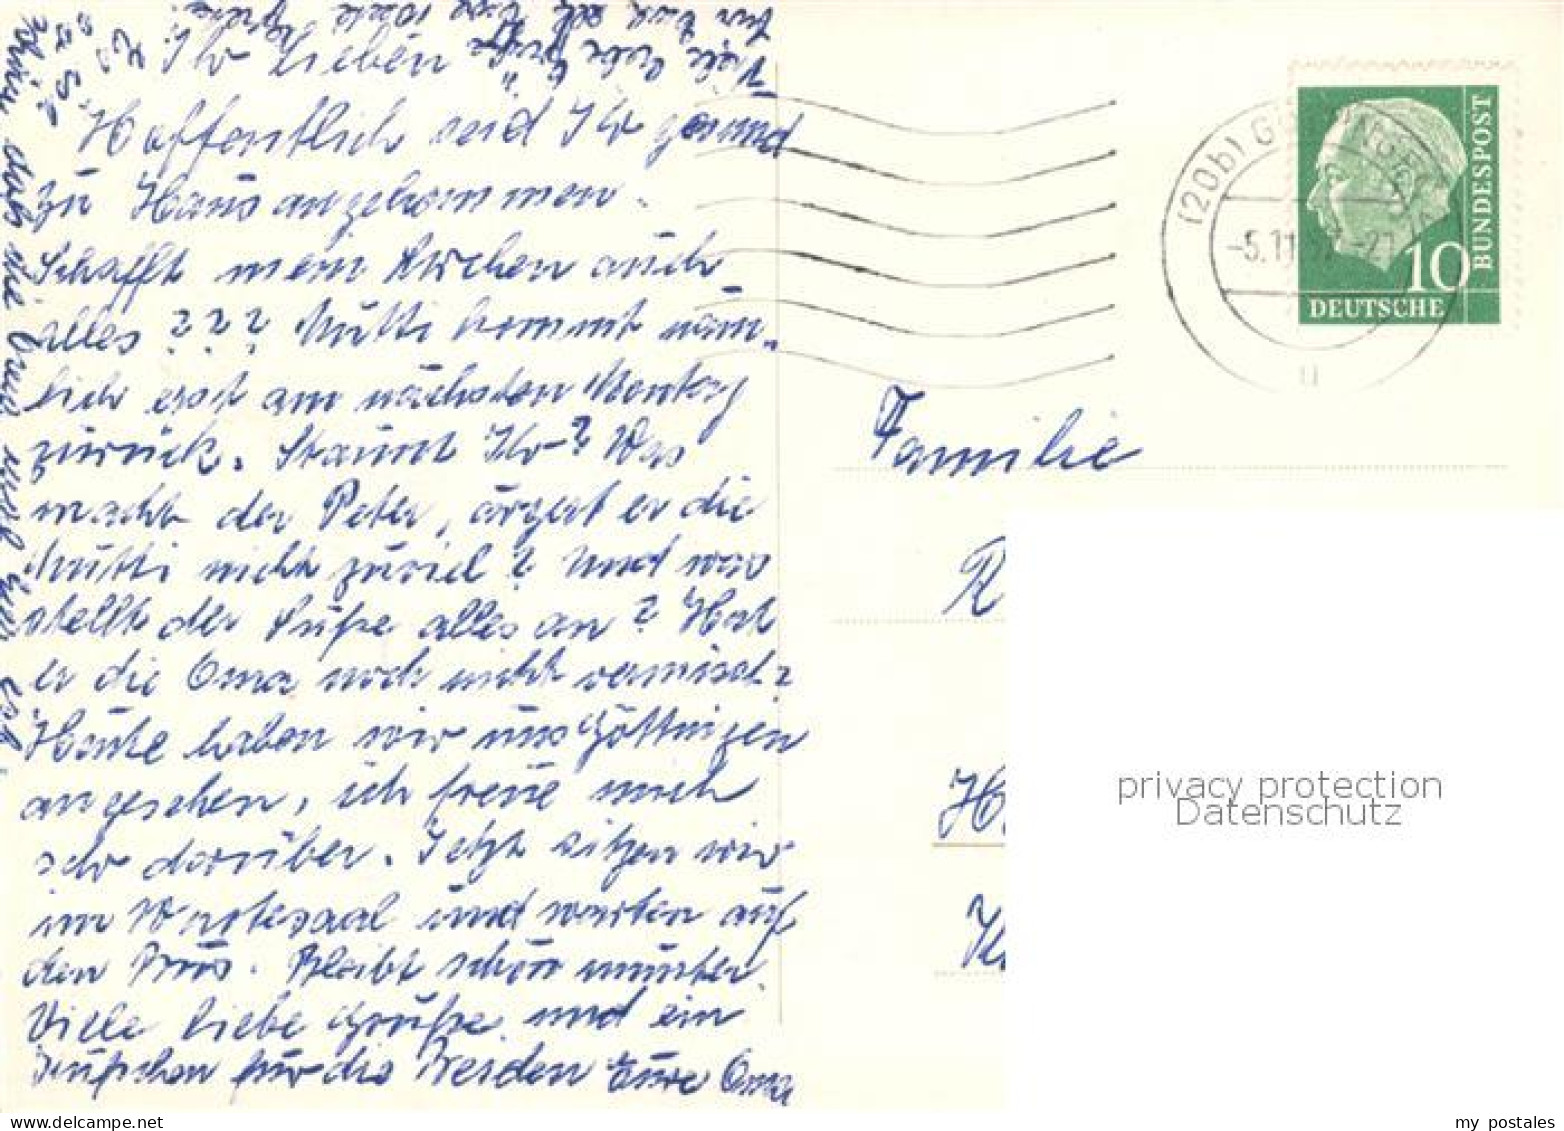 Ihr Lieben
Hoffentlich seid Ihr gesund
zu Haus angekommen.
Schafft mein
alles ??? Mutti kommt näm-
lich erst am nächsten Montag
zurück. Staunt Ihr? Was
macht der Peter, ärgert er die
Mutti nicht zuviel? Und was
stellt der Süße alles an? Hat
er die Oma noch nicht vermisst?
Heute haben wir uns Göttingen
angesehen, ich freue mich
sehr darüber. Jetzt sitzen wir
im Wartesaal und warten auf
den Bus. Bleibt schön munter.
Viele liebe Grüße und ein
Küßchen für die Beiden Eure Oma
Viele liebe Grüße
(20b) GÖTTINGEN
-5.11.
u
BUNDESPOST
10
DEUTSCHE
Familie
R
H
privacy protection
Datenschutz
my postales